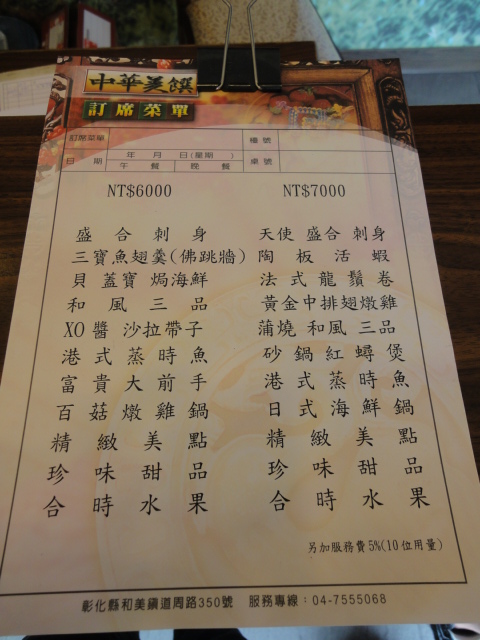 中華美饌
訂席菜單
訂席菜單
樓號
日期
年 月 日(星期 )
午餐 晚餐
桌號
NT$6000
盛合刺身
三寶魚翅羹(佛跳牆)
貝蓋寶焗海鮮
和風三品
XO醬沙拉帶子
港式蒸時魚
富貴大前手
百菇燉雞鍋
精緻美點
珍味甜品
合時水果
NT$7000
天使盛合刺身
陶板活蝦
法式龍鬚卷
黃金中排翅燉雞
蒲燒和風三品
砂鍋紅蟳煲
港式蒸時魚
日式海鮮鍋
精緻美點
珍味甜品
合時水果
另加服務費5%(10位用量)
彰化縣和美鎮道周路350號 服務專線：04-7555068